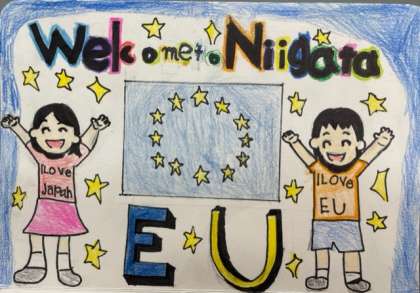 Welcome to Niigata
I Love
Japan
I Love
EU
EU